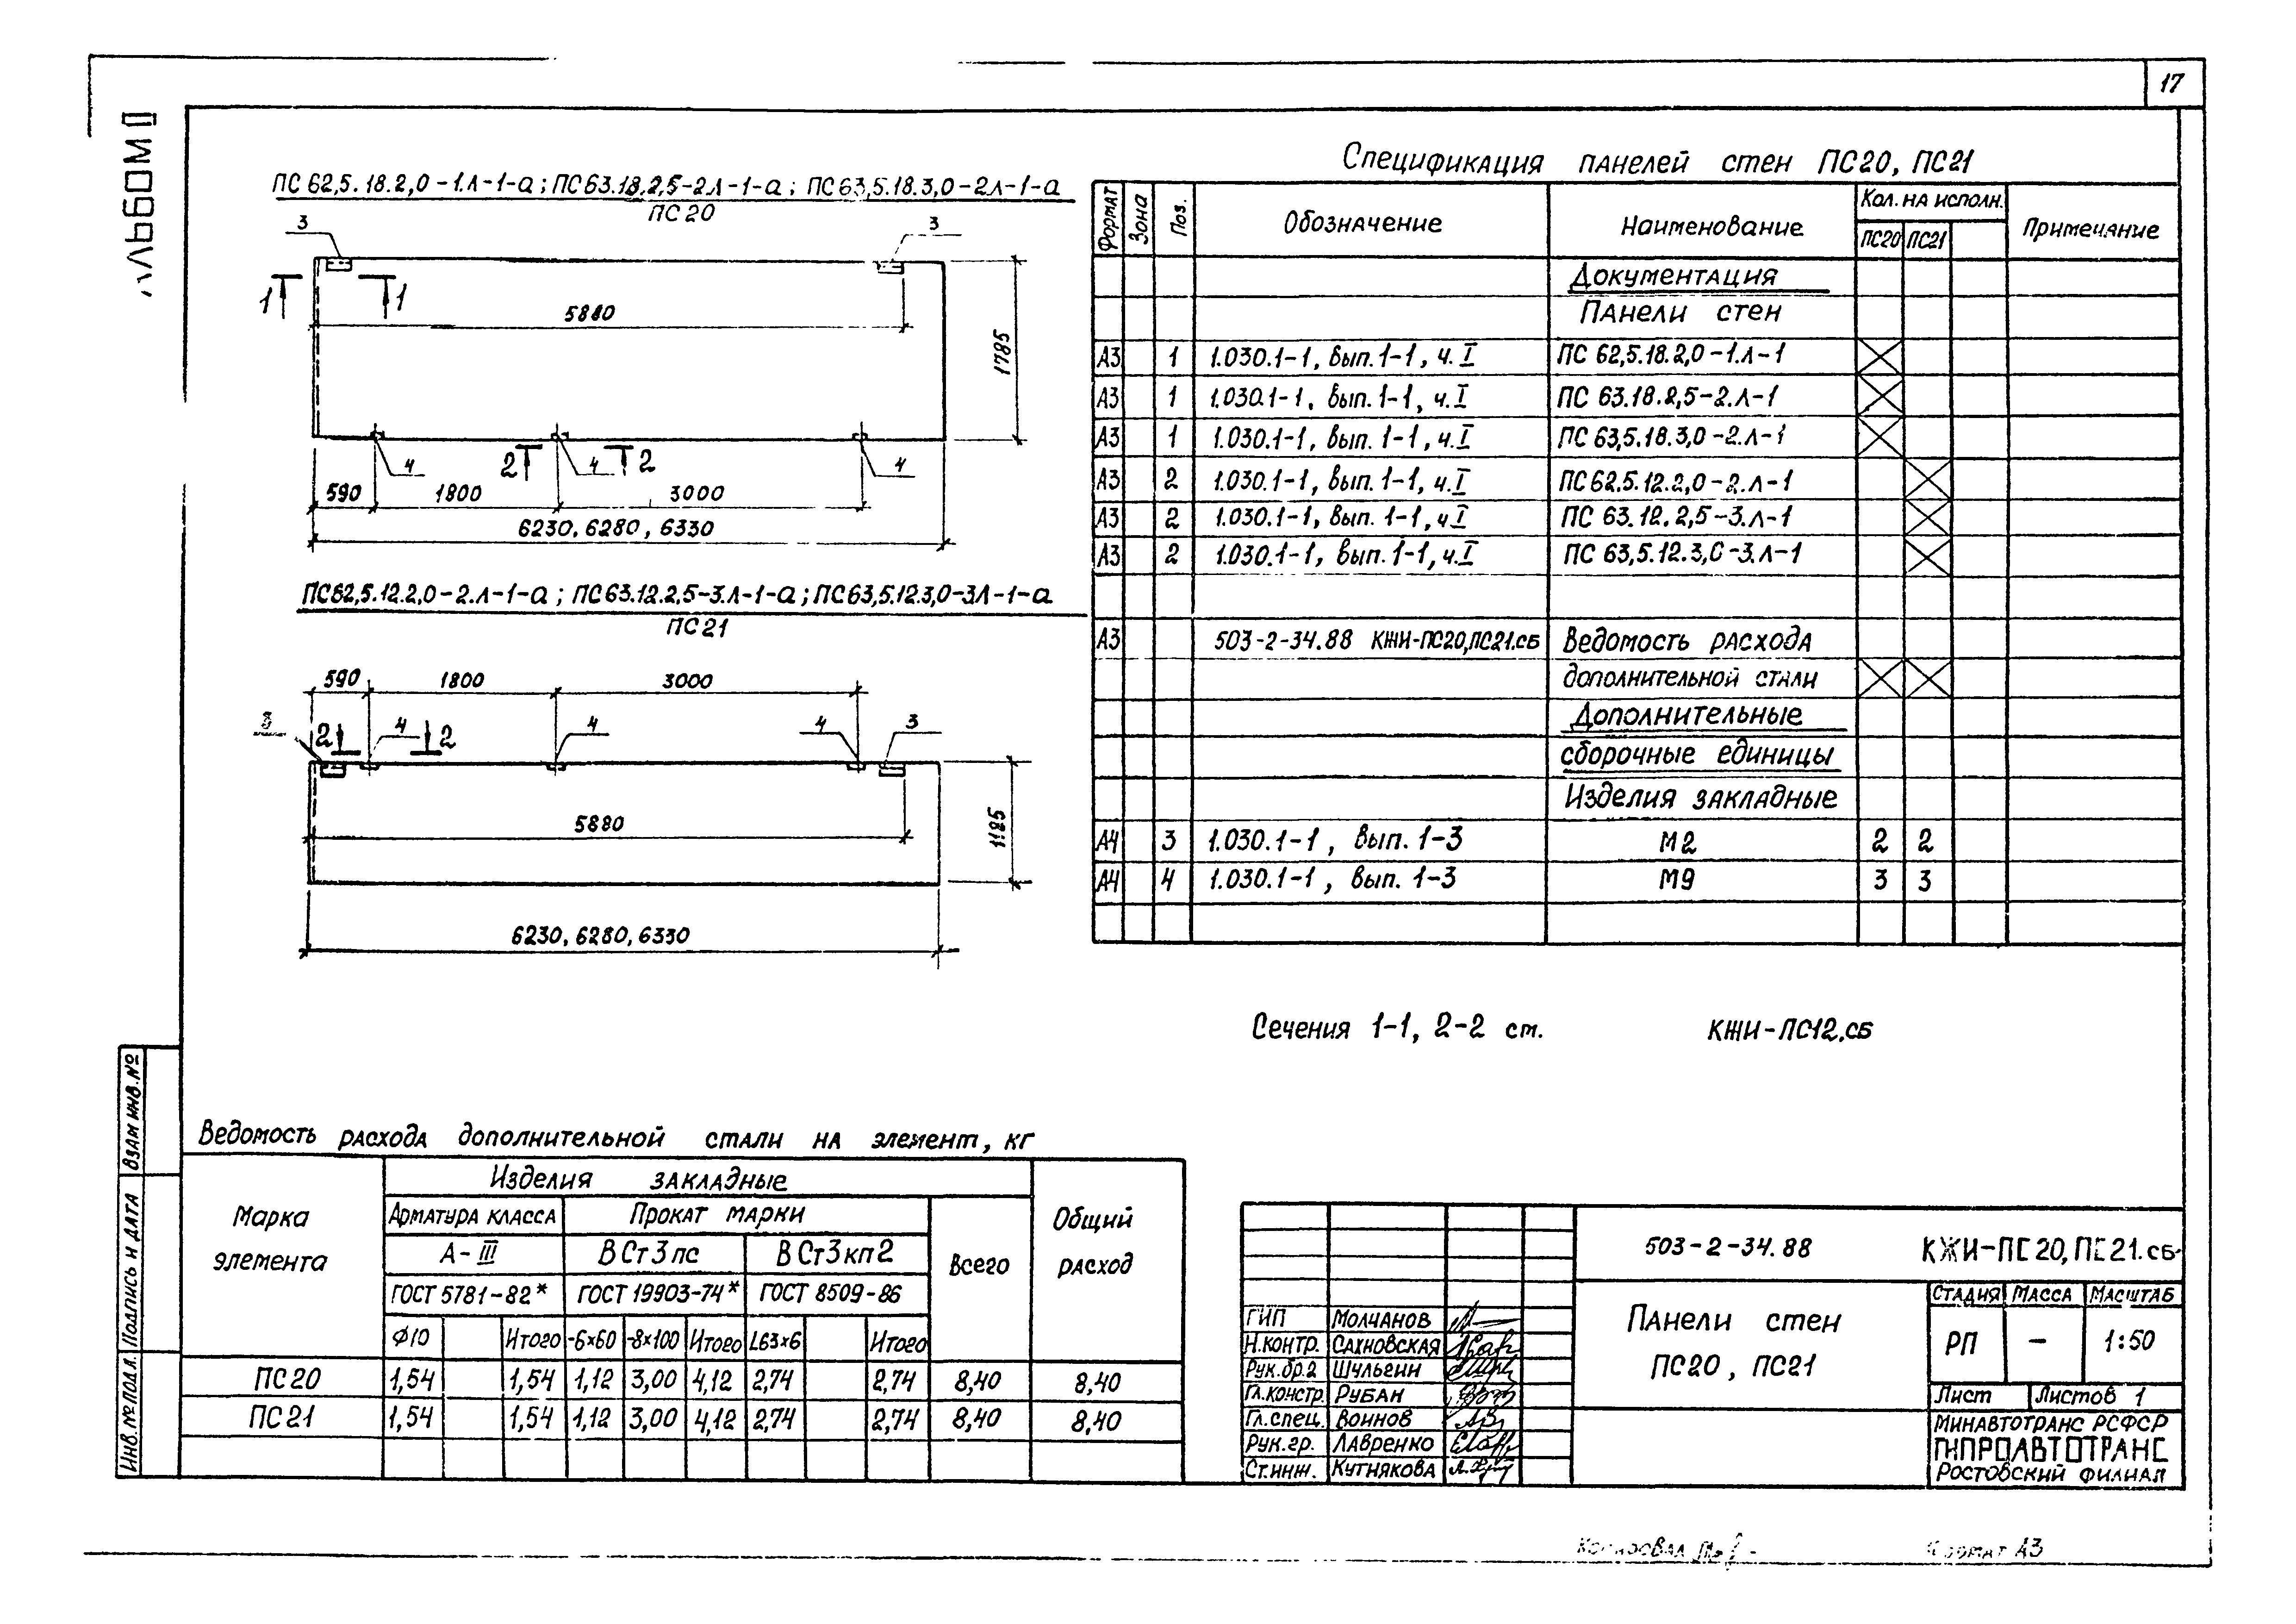 17
АЛЬБОМ II
ПС 62,5.18.2,0-1.Л-1-а; ПС63.18.2,5-2.Л-1-а; ПС63,5.18.3,0-2Л-1-а
ПС20
3
3
1
1
5880
1785
4
2
4
2
4
590
1800
3000
6230, 6280, 6330
ПС62,5.12.2,0-2.Л-1-а; ПС63.12.2,5-3.Л-1-а; ПС63,5.12.3,0-3Л-1-а
ПС21
590
1800
3000
3
2
4
2
4
4
3
5880
1185
6230, 6280, 6330
Спецификация панелей стен ПС20, ПС21
Формат
Зона
Поз.
Обозначение
Наименование
Кол. на исполн.
ПС20 ПС21
Примечание
Документация
Панели стен
А3 1 1.030.1-1, вып. 1-1, ч. I ПС 62,5.18.2,0-1.Л-1
А3 1 1.030.1-1, вып. 1-1, ч. I ПС 63.18.2,5-2.Л-1
А3 1 1.030.1-1, вып. 1-1, ч. I ПС 63,5.18.3,0-2.Л-1
А3 2 1.030.1-1, вып. 1-1, ч. I ПС 62.5.12.2,0-2.Л-1
А3 2 1.030.1-1, вып. 1-1, ч. I ПС 63.12.2,5-3.Л-1
А3 2 1.030.1-1, вып. 1-1, ч. I ПС 63,5.12.3,0-3.Л-1
А3 503-2-34.88 КЖИ-ПС20,ПС21.СБ Ведомость расхода
дополнительной стали
Дополнительные
сборочные единицы
Изделия закладные
А4 3 1.030.1-1, вып. 1-3 М2 2 2
А4 4 1.030.1-1, вып. 1-3 М9 3 3
Сечения 1-1, 2-2 ст. КЖИ-ПС12.СБ
Ведомость расхода дополнительной стали на элемент, кг
Марка элемента
Изделия закладные
Общий расход
Арматура класса
Прокат марки
Всего
А-III
ВСт3пс
ВСт3кп2
ГОСТ 5781-82*
ГОСТ 19903-74*
ГОСТ 8509-86
Ф10 Итого -6x60 -8x100 Итого L63x6 Итого
ПС20 1,54 1,54 1,12 3,00 4,12 2,74 2,74 8,40 8,40
ПС21 1,54 1,54 1,12 3,00 4,12 2,74 2,74 8,40 8,40
Взам инв.№
Подпись и дата
Инв.№ подл.
503-2-34.88 КЖИ-ПС20,ПС21.СБ
Панели стен
ПС20, ПС21
Стадия Масса Масштаб
РП – 1:50
Лист Листов 1
Минавтотранс РСФСР
ГИПРОАВТОТРАНС
Ростовский филиал
ГИП Молчанов
Н.контр. Сахновская
Рук.бр.2 Шульгин
Гл.констр Рубан
Гл.спец. Воинов
Рук.гр. Лавренко
Ст.инж. Кутнякова
Копировал
Формат А3